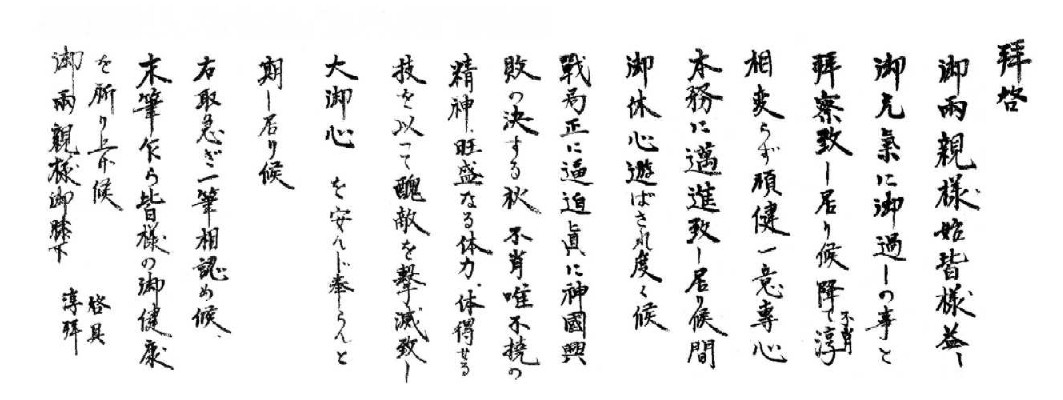 拝啓
御両親様始皆様益〻
御元氣に御過しの事と
拝察致し居り候降て不肖淳
相変らず頑健一意専心
本務に邁進致し居り候間
御休心遊ばされ度く候
戰局正に逼迫眞に神國興
敗の決する秋 不肖唯不撓の
精神、旺盛なる体力、体得せる
技を以って醜敵を撃滅致し
大御心 を安んじ奉らんと
期し居り候
右取急ぎ一筆相認め候、
末筆乍ら皆様の御健康
を祈り上げ候
啓具
淳拝
御両親様御膝下